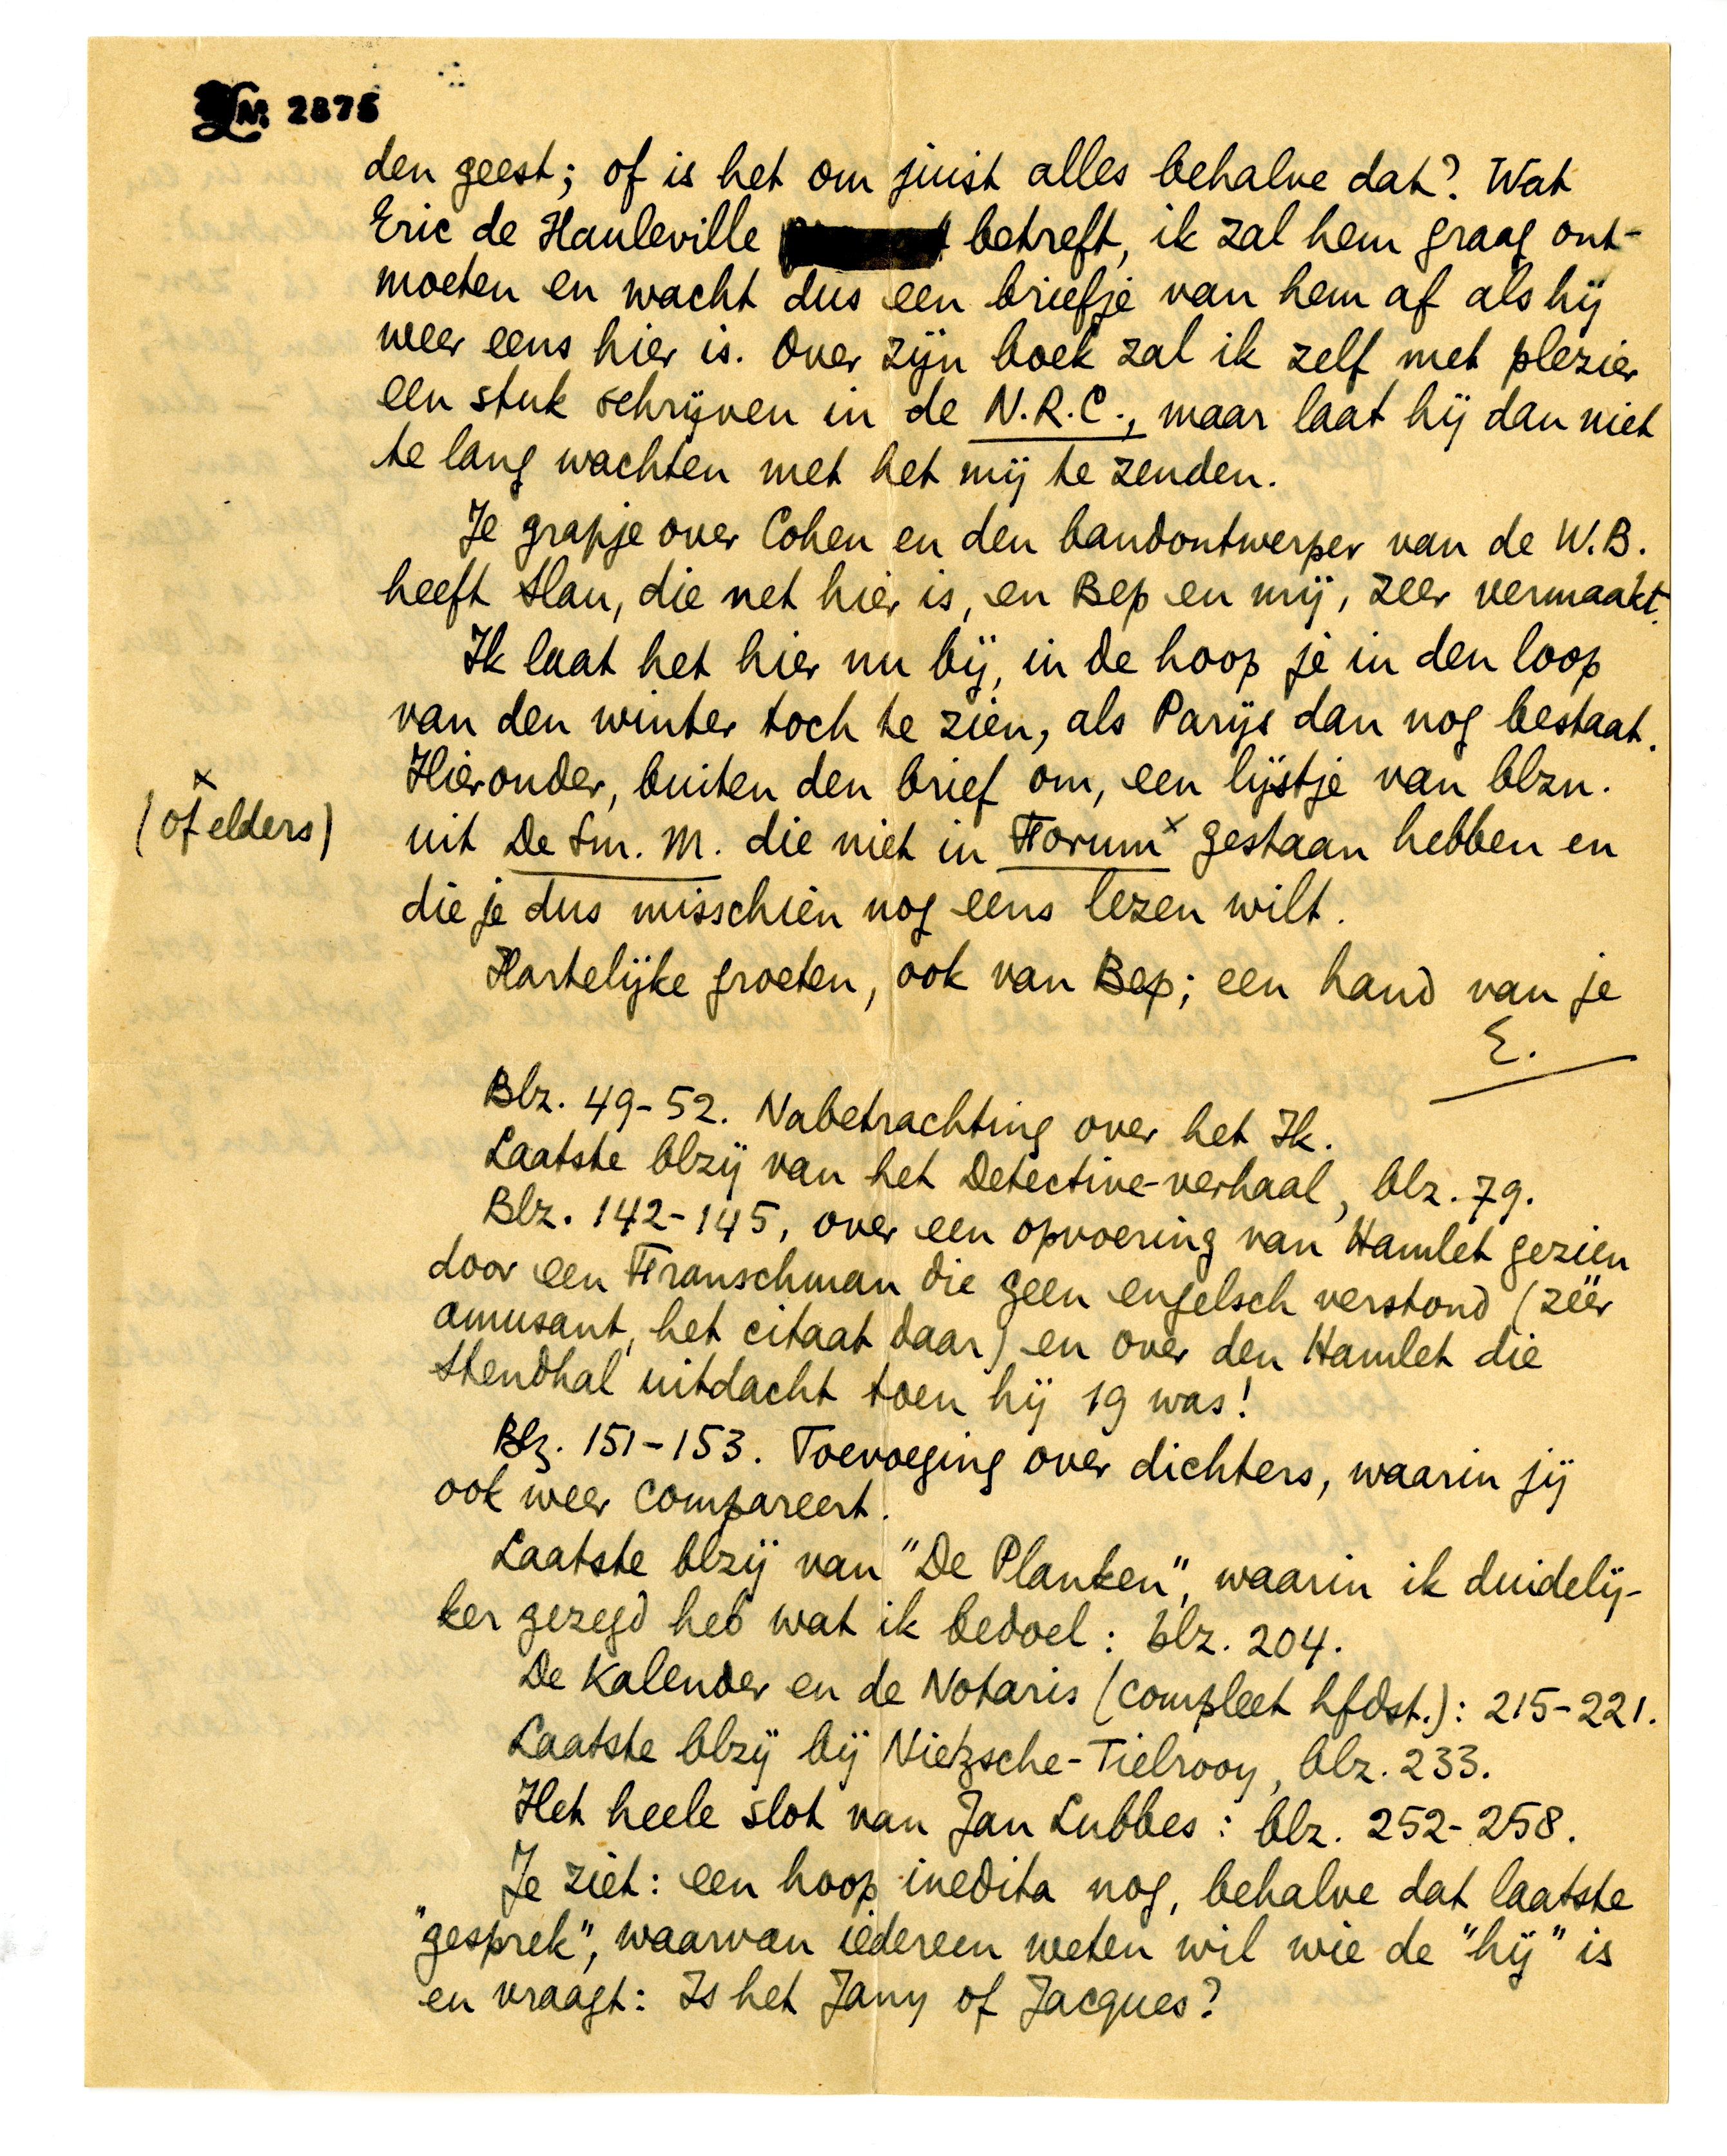 LM. 2875
den geest; of is het om juist alles behalve dat? Wat
Eric de Hauleville betreft, ik zal hem graag ont-
moeten en wacht dus een briefje van hem af als hij
weer eens hier is. Over zijn boek zal ik zelf met plezier
een stuk schrijven in de N.R.C., maar laat hij dan niet
te lang wachten met het mij te zenden.
Je grapje over Cohen en den bandontwerper van de W.B.
heeft Slau, die net hier is, en Bep en mij, zeer vermaakt.
Ik laat het hier nu bij, in de hoop je in den loop
van den winter toch te zien, als Parijs dan nog bestaat.
Hieronder, buiten den brief om, een lijstje van blzn.
uit De Sm. M. die niet in Forum x gestaan hebben en
x
(of elders)
die je dus misschien nog eens lezen wilt.
Hartelijke groeten, ook van Bep; een hand van je
E.
Blz. 49-52. Nabetrachting over het Ik.
Laatste blzij van het Detective-verhaal, blz. 79.
Blz. 142-145, over een opvoering van Hamlet gezien
door een Franschman die geen engelsch verstond (zéér
amusant, het citaat daar) en over den Hamlet die
Stendhal uitdacht toen hij 19 was!
Blz. 151-153. Toevoeging over dichters, waarin jij
ook weer compareert.
Laatste blzij van "De Planken", waarin ik duidelij-
ker gezegd heb wat ik bedoel: blz. 204.
De Kalender en de Notaris (compleet hfdst.): 215-221.
Laatste blzij bij Nietzsche-Tielrooy, blz. 233.
Het heele slot van Jan Lubbes: blz. 252-258.
Je ziet: een hoop inedita nog, behalve dat laatste
"gesprek", waarvan iedereen weten wil wie de "hij" is
en vraagt: Is het Jany of Jacques?